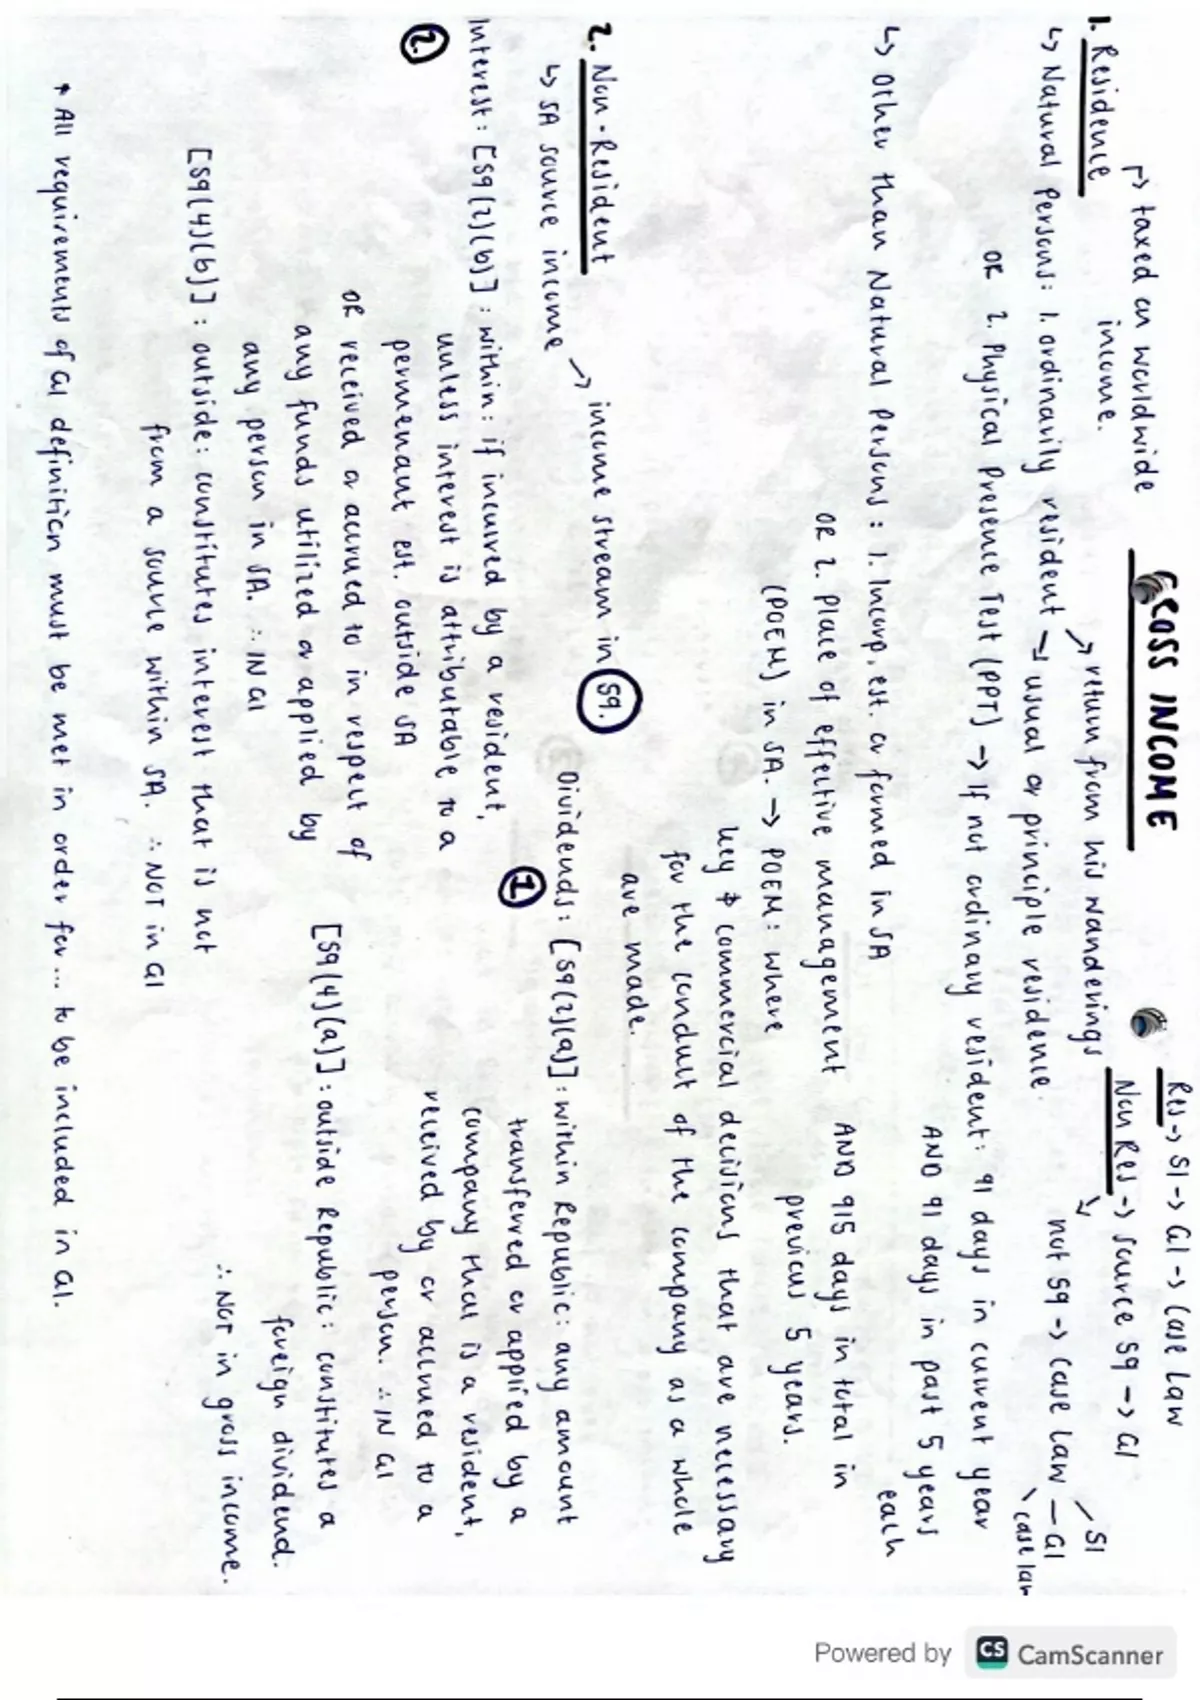 GROSS INCOME
Res → S1 → GI → Case law
Non Res → source S9 → GI
not S9 → case law — GI
S1
case law
1. Residence
↳ taxed on worldwide
income.
↳ Natural Persons: 1. ordinarily resident → usual or principle residence
→ return from his wanderings
OR 2. Physical Presence Test (PPT) → If not ordinary resident: 91 days in current year
AND 91 days in past 5 years
each
AND 915 days in total in
previous 5 years.
↳ Other than Natural Persons: 1. Incorp, est. or formed in SA
OR 2. Place of effective management
(POEM) in SA. → POEM: where
key & commercial decisions that are necessary
for the conduct of the company as a whole
are made.
2. Non-Resident
↳ SA source income → income stream in S9.
Interest: [S9(2)(b)]: within: if incurred by a resident,
2.
unless interest is attributable to a
permenant est. outside SA
OR received or accrued to in respect of
any funds utilized or applied by
any person in SA. ∴ IN GI
[S9(4)(b)]: outside: constitutes interest that is not
from a source within SA. ∴ NOT in GI
Dividends: [S9(2)(a)]: within Republic: any amount
1
transferred or applied by a
company that is a resident,
received by or accrued to a
person. ∴ IN GI
[S9(4)(a)]: outside Republic: constitutes a
foreign dividend.
∴ NOT in gross income.
* All requirements of GI definition must be met in order for ... to be included in GI.
Powered by CS CamScanner